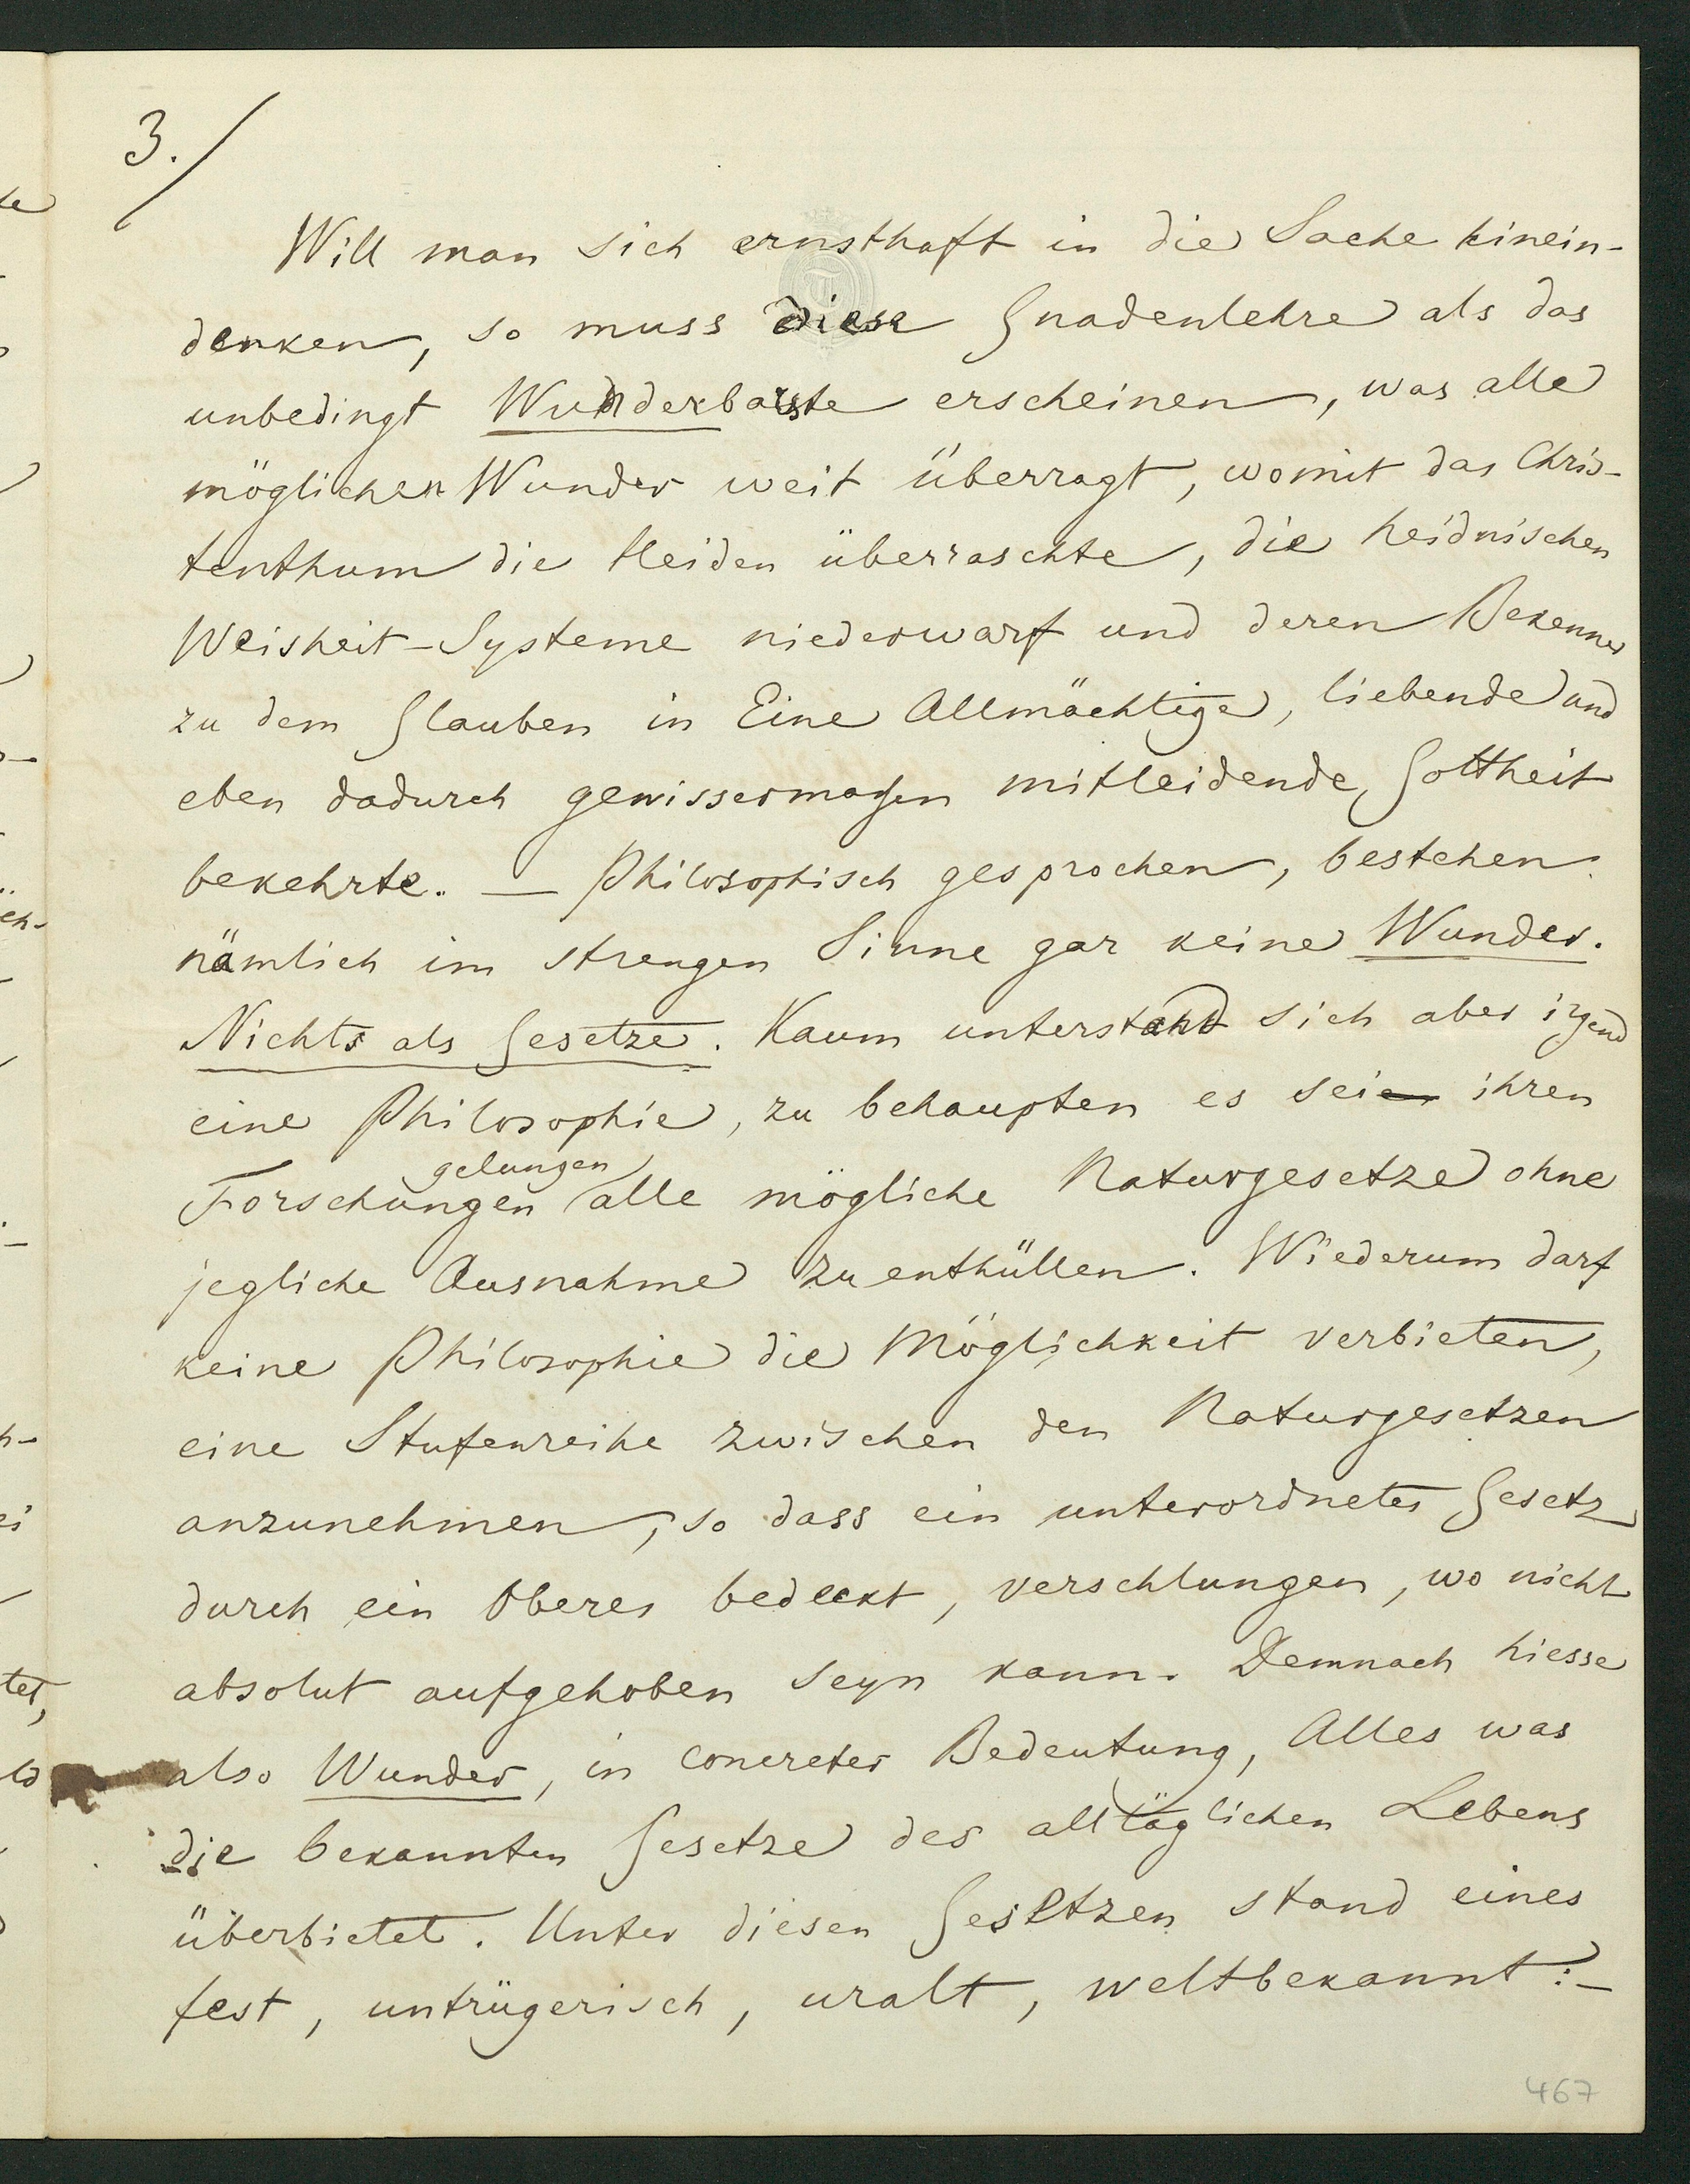 3./
Will man sich ernsthaft in die Sache hinein-
denken, so muss diese Gnadenlehre als das
unbedingt Wunderbarste erscheinen, was alle
möglichen Wunder weit überragt, womit das Chris-
tenthum die Heiden überraschte, die heidnischen
Weisheit-Systeme niederwarf und deren Bekenner
zu dem Glauben in Eine Allmächtige, liebende und
eben dadurch gewissermaßen mitleidende, Gottheit
bekehrte. — Philosophisch gesprochen, bestehen
nämlich im strengen Sinne gar keine Wunder.
Nichts als Gesetze. Kaum unterstand sich aber irgend
eine Philosophie, zu behaupten es sei ihren
gelungen
Forschungen alle mögliche Naturgesetze ohne
jegliche Ausnahme zu enthüllen. Wiederum darf
keine Philosophie die Möglichkeit verbieten,
eine Stufenreihe zwischen den Naturgesetzen
anzunehmen, so dass ein unterordnetes Gesetz
durch ein Oberes bedeckt, verschlungen, wo nicht
absolut aufgehoben seyn kann. Demnach hiesse
also Wunder, in concreter Bedeutung, Alles was
die bekannten Gesetze des alltäglichen Lebens
überbietet. Unter diesen Gesetzen stand eines
fest, untrügerisch, uralt, weltbekannt:—
467